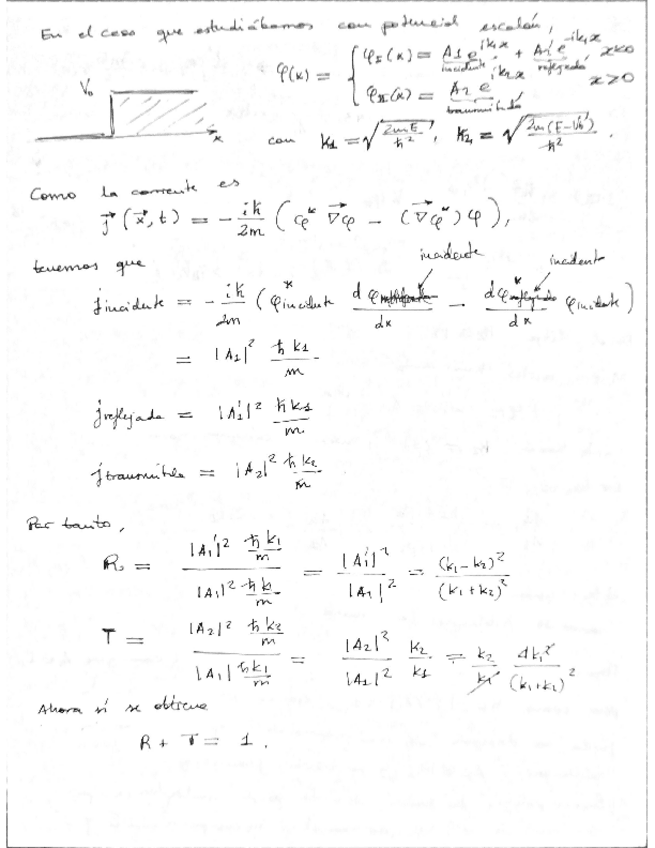 En el caso que estudiábamos con potencial escalón,
V₀ x
φ(x) = { φ_I(x) = A₁ e^{ik₁x} + A₁' e^{-ik₁x} x<0
incidente reflejada
φ_II(x) = A₂ e^{ik₂x} x>0
transmitida
con k₁ = √(2mE/ħ²), k₂ = √(2m(E-V₀)/ħ²).
Como la corriente es
j⃗(x⃗,t) = - iħ/2m (φ* ∇⃗φ - (∇⃗φ*) φ),
tenemos que
incidente incidente
j incidente = - iħ/2m (φ*incidente dφ/dx - dφ*/dx φincidente)
= |A₁|² ħk₁/m
j reflejada = |A₁'|² ħk₁/m
j transmitida = |A₂|² ħk₂/m
Por tanto,
R = (|A₁'|² ħk₁/m) / (|A₁|² ħk/m) = |A₁'|²/|A₁|² = (k₁-k₂)²/(k₁+k₂)²
T = (|A₂|² ħk₂/m) / (|A₁| ħk₁/m) = |A₂|²/|A₁|² k₂/k₁ = k₂/k₁ 4k₁²/(k₁+k₂)²
Ahora sí se obtiene
R + T = 1.